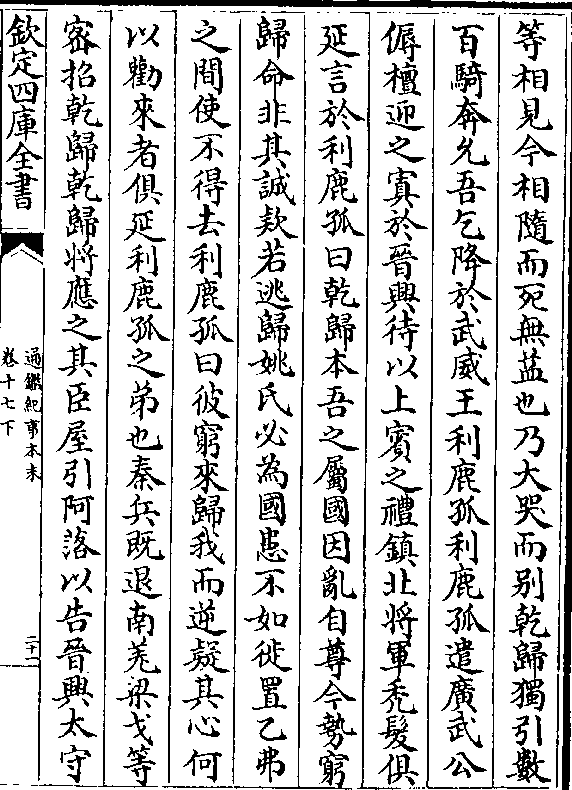 等相見今相隨而死無益也乃大哭而别乾歸獨引數
百騎奔允吾乞降於武威王利鹿孤利鹿孤遣廣武公
傉檀迎之寘於晉興待以上賓之禮鎮北將軍秃髮俱
延言於利鹿孤曰乾歸本吾之屬國因亂自尊今勢窮
歸命非其誠款若逃歸姚氏必為國患不如徙置乙弗
之間使不得去利鹿孤曰彼窮來歸我而逆疑其心何
以勸來者俱延利鹿孤之弟也秦兵既退南羌梁戈等
密招乾歸乾歸將應之其臣屋引阿洛以告晉興太守
欽定四庫全書
通鑑紀事本末
卷十七下
二十一